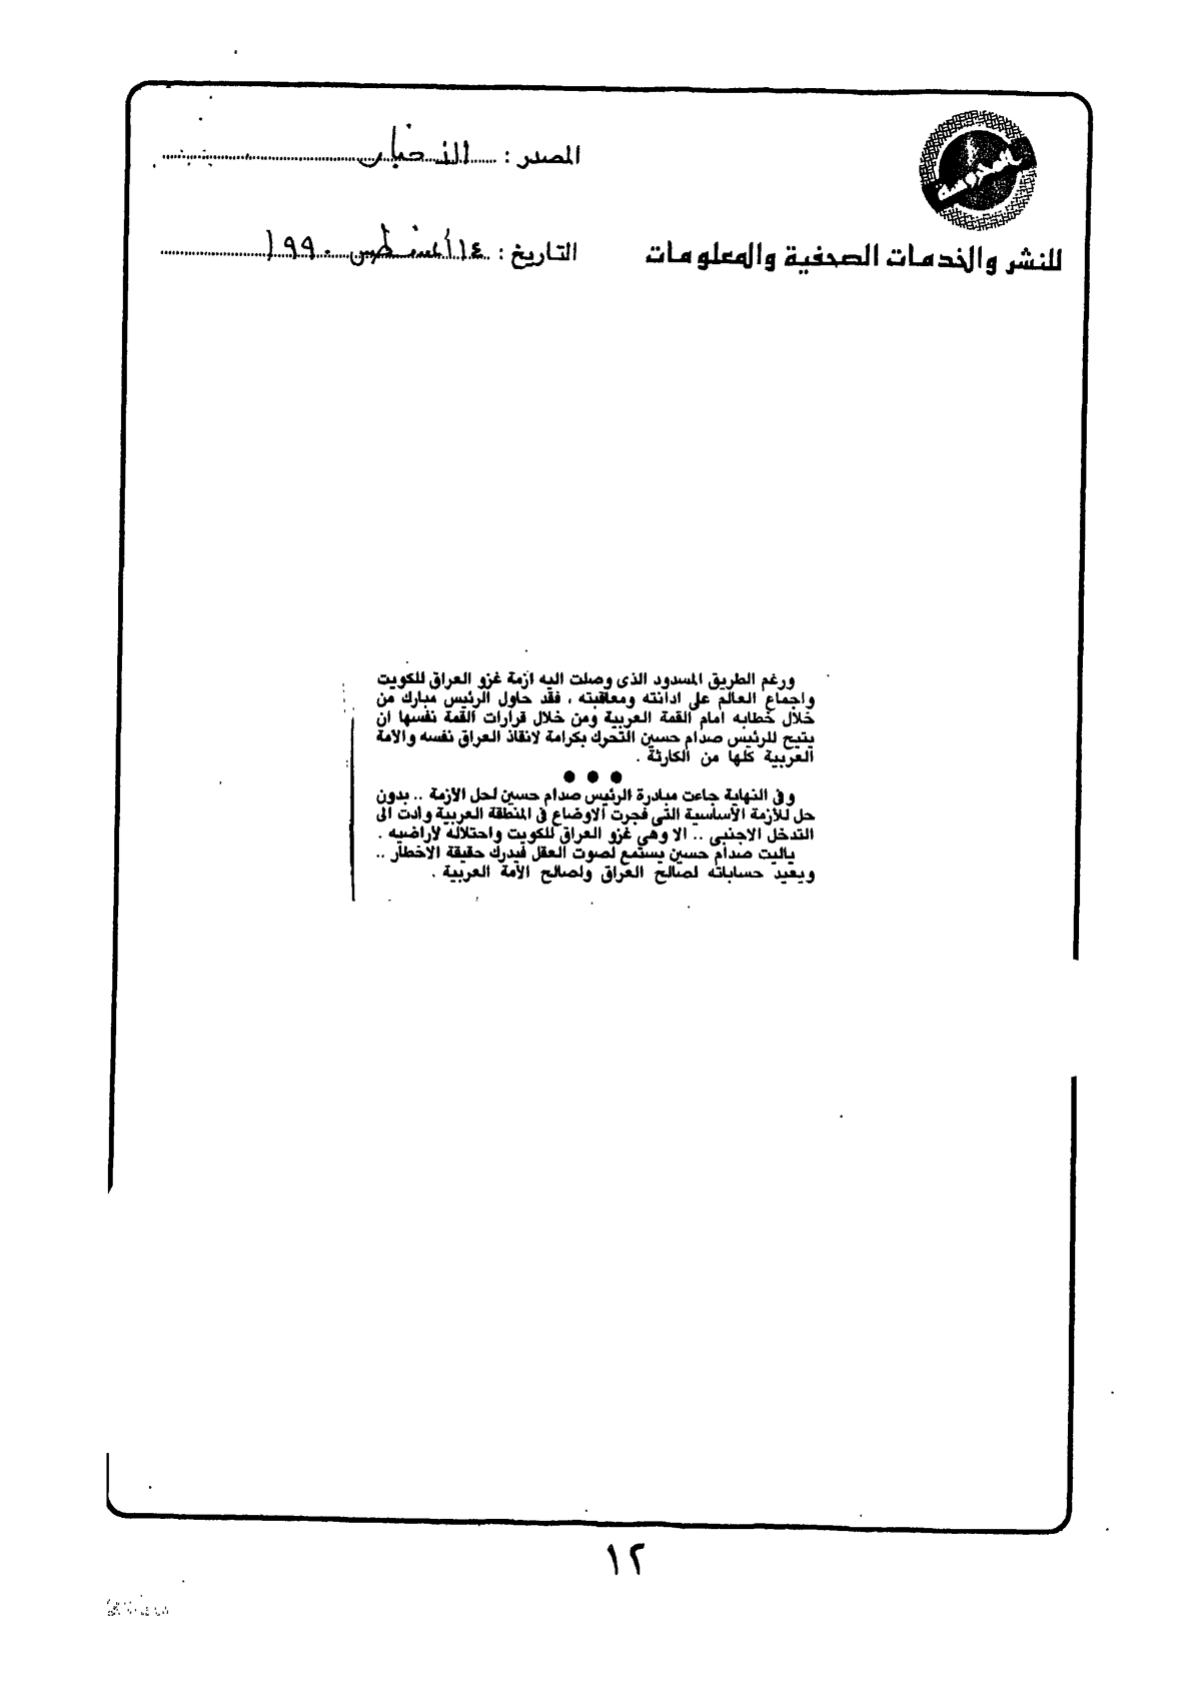 المصدر : الأخبار
المحروسة
التاريخ : ١٤ أغسطس ١٩٩٠
للنشر والخدمات الصحفية والمعلومات
ورغم الطريق المسدود الذى وصلت اليه ازمة غزو العراق للكويت
واجماع العالم على ادانته ومعاقبته ، فقد حاول الرئيس مبارك من
خلال خطابه امام القمة العربية ومن خلال قرارات القمة نفسها ان
يتيح للرئيس صدام حسين التحرك بكرامة لانقاذ العراق نفسه والامة
العربية كلها من الكارثة .
● ● ●
وفى النهاية جاءت مبادرة الرئيس صدام حسين لحل الازمة .. بدون
حل للازمة الاساسية التى فجرت الاوضاع فى المنطقة العربية وادت الى
التدخل الاجنبى .. الا وهى غزو العراق للكويت واحتلاله لاراضيه .
ياليت صدام حسين يستمع لصوت العقل فيدرك حقيقة الاخطار ..
ويعيد حساباته لصالح العراق ولصالح الأمة العربية .
١٢